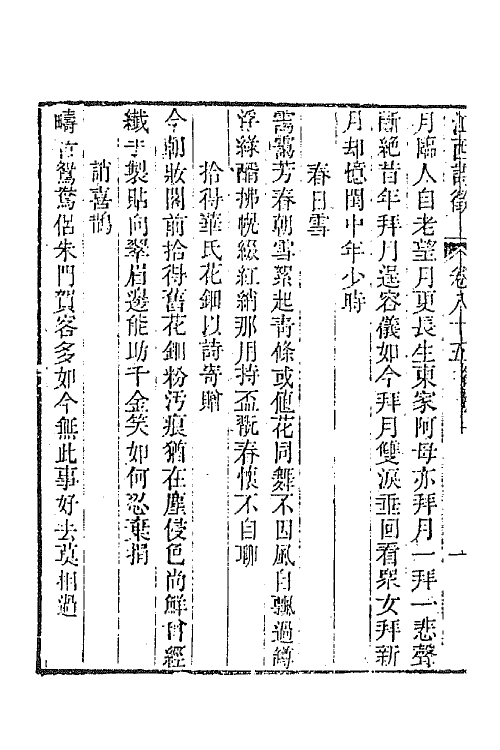 江西詩徵 卷八十五 一
月臨人自老望月更長生東家阿母亦拜月一拜一悲聲
斷絕昔年拜月逞容儀如今拜月雙淚垂回看衆女拜新
月却憶閨中年少時
春日雪
靄靄芳春朝雪絮起靑條或値花同舞不因風自飄過罇
浮綠醑拂幌綴紅綃那用持盃翫春懷不自聊
拾得華氏花鈿以詩寄贈
今朝妝閣前拾得舊花鈿粉汚痕猶在塵侵色尚鮮曾經
纖手製貼向翠眉邊能助千金笑如何忍棄捐
誚喜鵲
疇昔鴛鴦侶朱門賀客多如今無此事好去莫相過